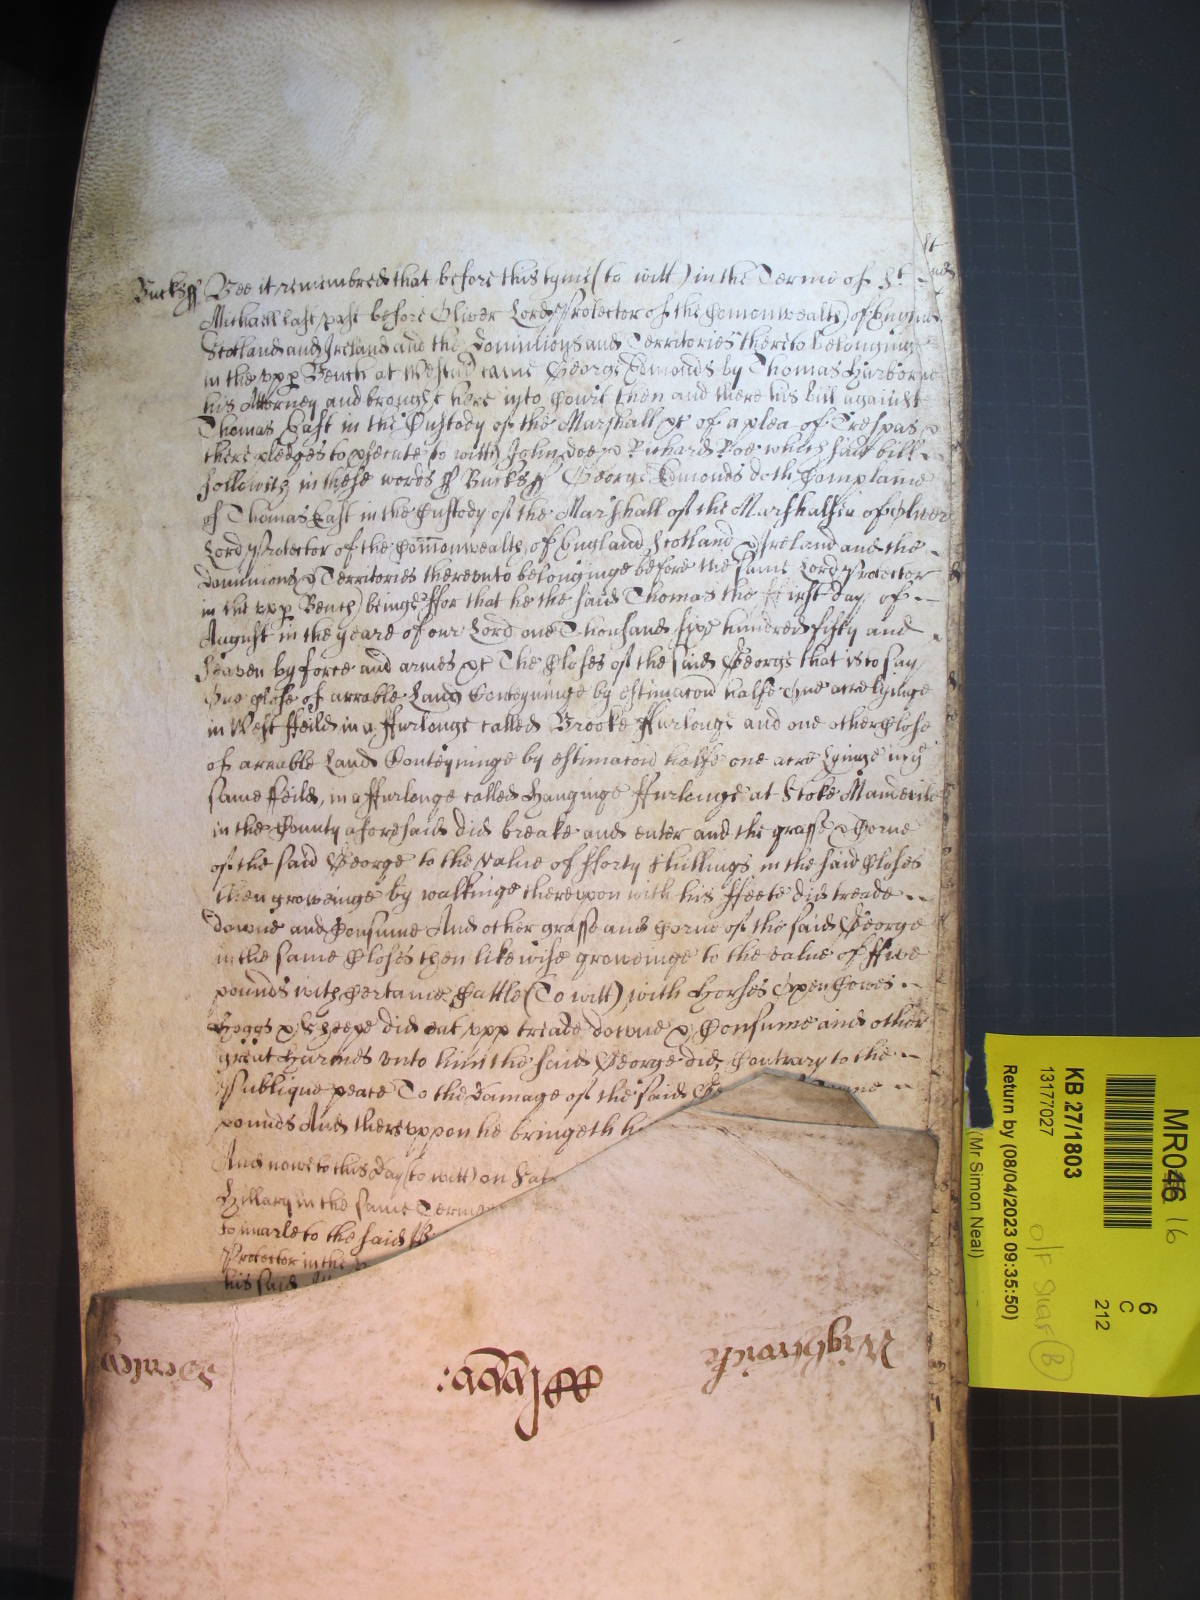 Bucks ff Bee it remembred that before this tyme (to witt) in the Terme of St
Michaell last past before Oliver Lord Protector of the Comonwealth of England
Scotland and Ireland and the Dominions and Territories thereto belonginge
in the upp Bench at Westm came George Edmonds by Thomas Harborne
his Attorney and brought here into Court then and there his bill against
Thomas East in the Custody of the Marshall &c of a plea of Trespas &
there pledges to psecute to witt John doe & Richard Roe which said bill
followith in these words ff Bucks ff George Edmonds doth Complaine
of Thomas East in the Custody of the Marshall of the Marshalsea of Oliver
Lord Protector of the Comonwealth of England Scotland & Ireland and the
dominions & Territories thereunto belonginge before the same Lord Protector
in the upp Bench beinge ffor that he the said Thomas the ffirst day of
August in the yeare of our Lord one Thousand six hundred fifty and
seaven by force and armes &c The Closes of the said George that is to say
One close of arrable Land Conteyninge by estimacon halfe One acre lyinge
in West ffeild in a ffurlonge called Brooke ffurlonge and one other Close
of arrable Land Conteyninge by estimacon halfe one acre Lyinge in ye
same ffeild, in a ffurlonge called Hanginge ffurlonge at Stoke Mandevile
in the County aforesaid did breake and enter and the grasse & Corne
of the said George to the value of fforty shillings in the said Closes
then groweinge by walkinge thereupon with his ffeete did treade
downe and Consume And other grasse and Corne of the said George
in the same Closes then likewise groweinge to the value of ffive
pounds with Certaine Cattle (To witt) with Horses Oxen Cowes
Hoggs & Sheepe did eat upp treade downe & Consume and other
great Harmes unto him the said George did, Contrary to the
Publique peace To the damage of the said Ge
pounds And thereuppon he bringeth h
And nowe to this day (to witt) on Sat
Hillary in the same Terme
to imparle to the said B
Protector in the
his said
Wightwicke
KB 27/1803
13177027
Return by (08/04/2023 09:35:50)
(Mr Simon Neal)
MR046 16
6
C
212
O/F Shar (B)